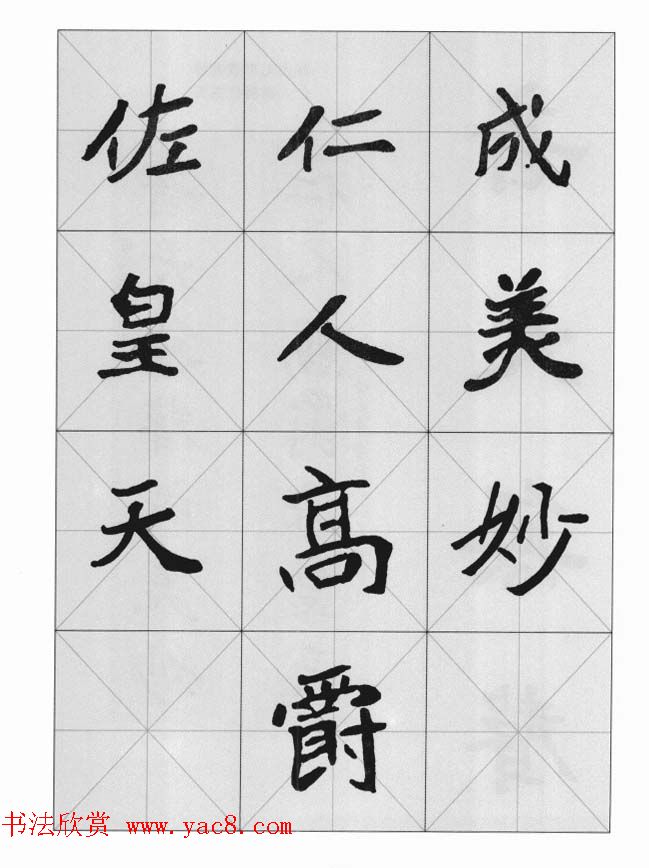 成美妙
仁人高爵
佐皇天
书法欣赏 www.yac8.com